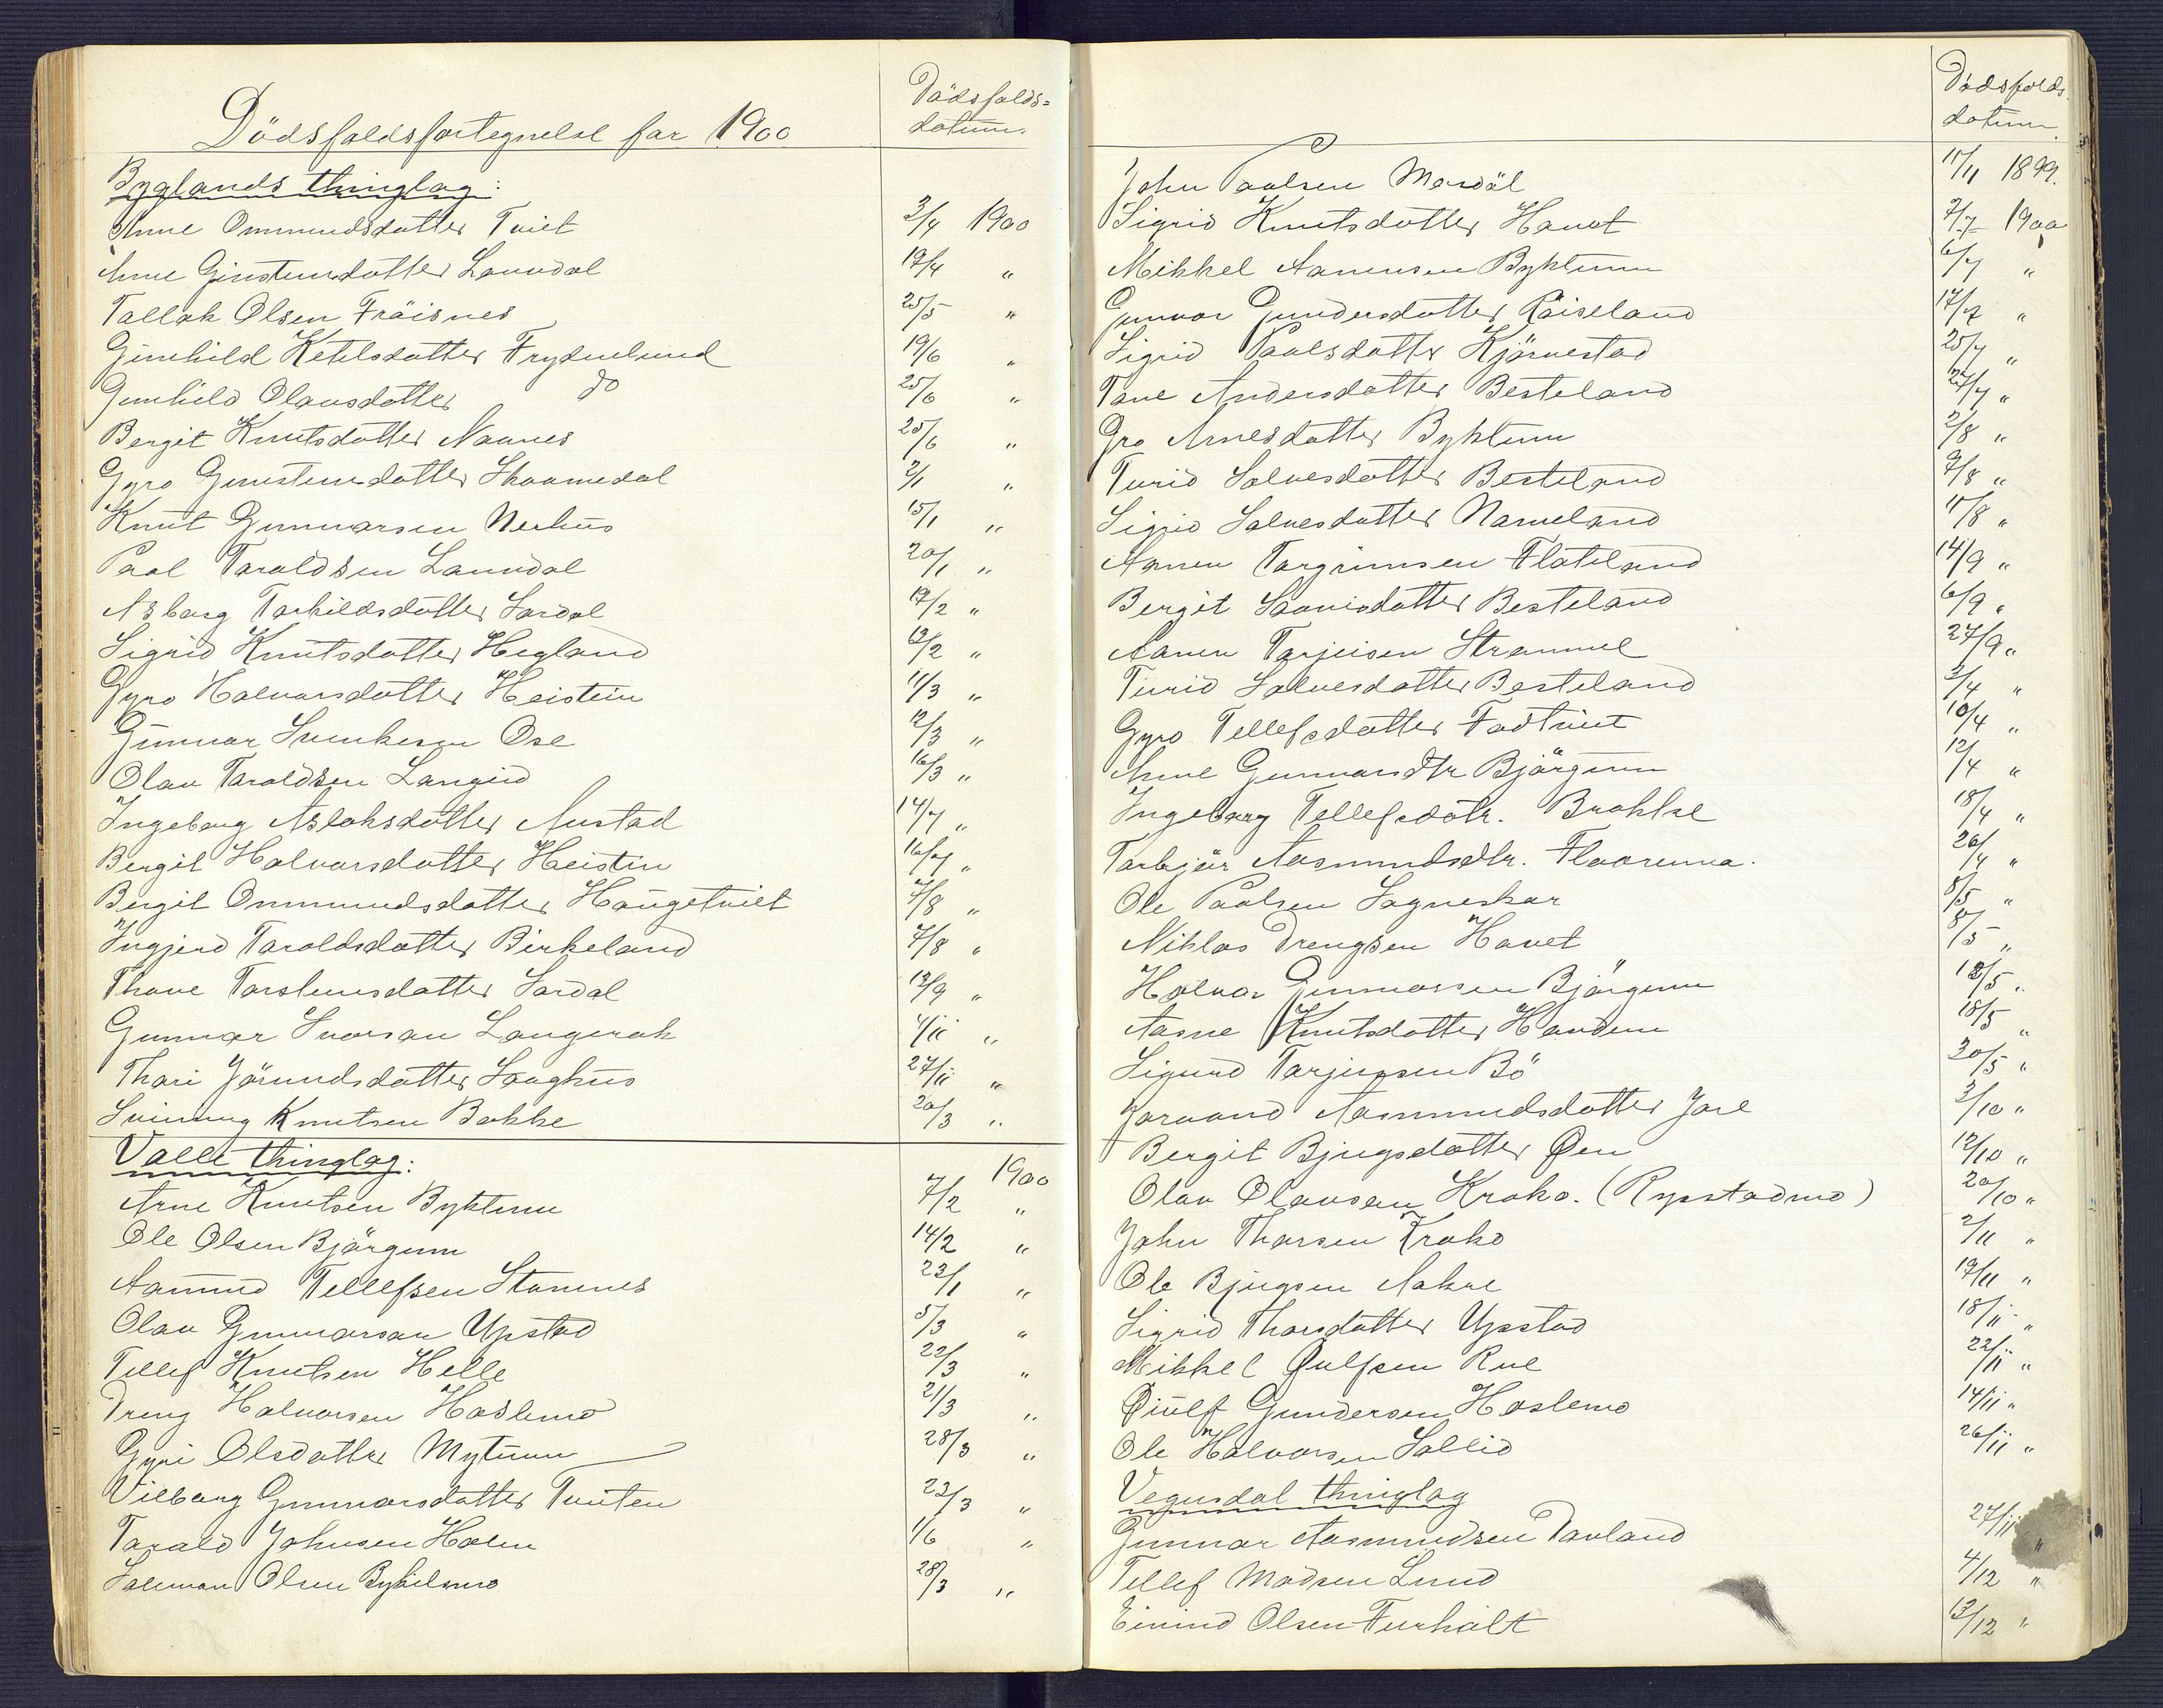 Dödsfaldsfortegnelse for 1900 Dödsfalds=
datum.
Byglands thinglag:
Anne Ommundsdatter Tveit 3/4 1900
Anne Gunsteinsdatter Lauvdal 19/4 "
Tallak Olsen Fröisnes 25/5 "
Gunhild Ketilsdatter Frydenlund 19/6 "
Gunhild Olausdatter do 25/6 "
Bergit Knutsdatter Naanes 25/6 "
Gyro Gunsteinsdatter Skaamedal 2/1 "
Knut Gunnarsen Nerhus 15/1 "
Paal Taraldsen Lauvdal 20/1 "
Asborg Torkildsdatter Sordal 19/2 "
Sigrid Knutsdatter Hegland 13/2 "
Gyro Halvorsdatter Heistein 11/3 "
Gunnar Svenkesen Ose 12/3 "
Olav Taraldsen Langeid 16/3 "
Ingeborg Aslaksdatter Austad 14/7 "
Bergit Halvorsdatter Heistein 16/7 "
Bergit Ommundsdatter Haugetveit 7/8 "
Ingjerd Taraldsdatter Birkeland 7/8 "
Thone Torsteinsdatter Sordal 13/9 "
Gunnar Ivarsen Langerak 4/11 "
Thori Jörundsdatter Sanghus 27/11 "
Sveinung Knutsen Bakke 20/3 "
Valle thinglag: 1900
Arne Knutsen Bykleum 7/2 "
Ole Olsen Björgum 14/2 "
Aamund Tellefsen Stamnes 23/1 "
Olav Gunnarson Upstad 5/3 "
Tellef Knutsen Helle 22/3 "
Dreng Halvorsen Haslemo 21/3 "
Gyri Olsdatter Mytuum 28/3 "
Vilborg Gunnarsdatter Tveiten 23/3 "
Tarald Johnsen Holen 1/6 "
Salmon Olsen Byklemo 28/3 "
Dödsfalds
datum.
John Paalsen Nordal 11/11 1899.
Sigrid Knutsdatter Havet 7/7 1900
Mikkel Aanensen Bykleum 6/7 "
Gunvor Gundersdatter Röiseland 17/7 "
Sigrid Paalsdatter Kjörnestad 25/7 "
Tone Andersdatter Besteland 27/7 "
Gro Arnesdatter Bykleum 2/8 "
Turid Salvesdatter Besteland 9/8 "
Sigrid Salvesdatter Nameland 11/8 "
Aanen Torgrimsen Flateland 14/9 "
Bergit Saavisdatter Besteland 6/9 "
Aanen Torjeisen Strømmel 27/9 "
Turid Salvesdatter Besteland 3/4 "
Gyro Tellefsdatter Fodtveit 10/4 "
Anne Gunnarsdtr Björgum 12/4 "
Ingeborg Tellefsdatr. Brokke 18/4 "
Torbjör Aasmundsdtr. Flaarenna. 26/4 "
Ole Paalsen Sagneskar 8/5 "
Niklas Drengsen Havet 8/5 "
Halvor Gunnarsen Björgum 18/5 "
Aasne Knutsdatter Harden 18/5 "
Sigurd Torjussen Bö 30/5 "
Jorand Aasmundsdatter Jore 3/10 "
Bergit Bjugsdatter Øen 12/10 "
Olav Olavsen Kroko. (Rysstadmo) 20/10 "
John Thorsen Kroko 2/11 "
Ole Bjugsen Aakre 19/11 "
Sigrid Thorsdatter Upstad 18/11 "
Mikkel Øulfsen Rue 22/11 "
Øiulf Gundersen Haslemo 14/11 "
Ole Halvorsen Sollid 26/11 "
Vegusdal thinglag
Gunnar Aasmundsen Dovland 27/11 "
Tellef Madsen Lund 4/12 "
Eivind Olsen Furholt 13/12 "